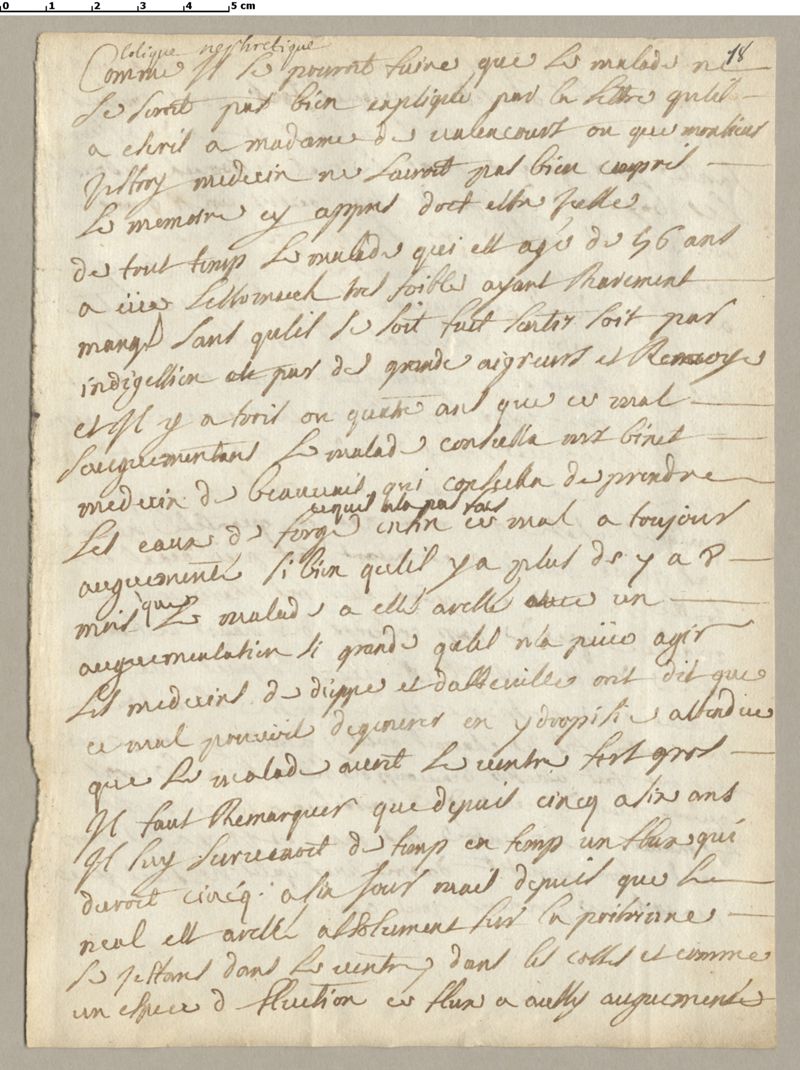 0 1 2 3 4 5 cm
Colique nephretique
18
Comme Il se pouroit faire que le malade ne
se seroit pas bien expliqué par la lettre quil
a escrit a madame de valencourt ou que monsieur
medecin ne lauroit pas bien compris
le memoire cy appres doit estre
de tout temp le malade qui est agé de 56 ans
a üe lestomach tres foible ayant Rarement
mangé sans quil se soit fait sentir soit par
indigestion et par de grande aigreurs et
et Il y a trois ou quatre ans que ce mal
saugmentans le malade consulta mr binet
medecin de beauvais qui conseilla de prendre
ce quil na pas fais
les eaux de forge enfin ce mal a toujour
augmenté si bien quil y a plus de y a 8
mois que le malade a esté avec un
augmentation si grande quil na püe agir
les medecins de dieppe et dabbeville ont dit que
ce mal pouvoit degenerer en ydropisie attendue
que le malade avoit le ventre fort gros
Il faut Remarquer que depuis cincq a six ans
Il luy survenoit de temp en temp un flux qui
duroit cincq a six jour mais depuis que le
mal est absolument sur la poitrinne
se jettans dans le ventre dans les costes et comme
un espece d fluction ce flux a aussy augmenté